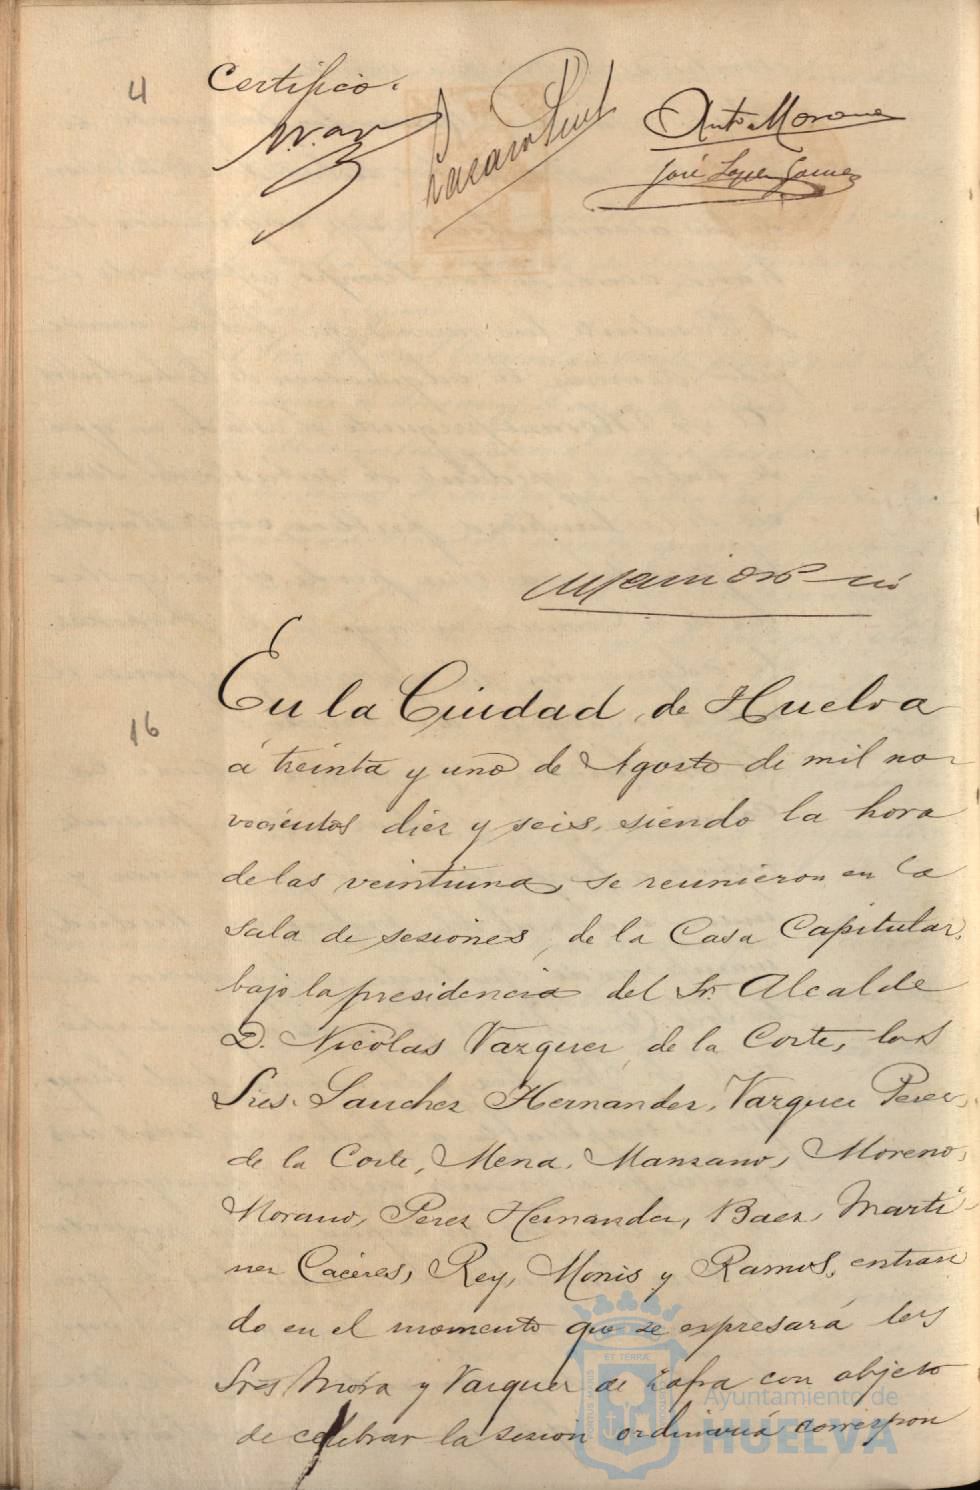 4
Certifico.
Antº Morano
José Lopez Gomez
En la Ciudad de Huelva
16
á treinta y uno de Agosto de mil no-
vecientos diez y seis, siendo la hora
de las veintiuna, se reunieron en la
Sala de sesiones, de la Casa Capitular,
bajo la presidencia del Sr. Alcalde
D. Nicolas Vazquez de la Corte, los
Sres. Sanchez Hernandez, Vazquez Perez,
de la Corte, Mena, Manzano, Moreno,
Morano, Perez Hernandez, Baez, Marti-
nez Cáceres, Rey, Monis y Ramos, entran
do en el momento que se expresará los
Sres Mora y Vazquez de Zafra con objeto
de celebrar la sesion ordinaria correspon
Ayuntamiento de
HUELVA